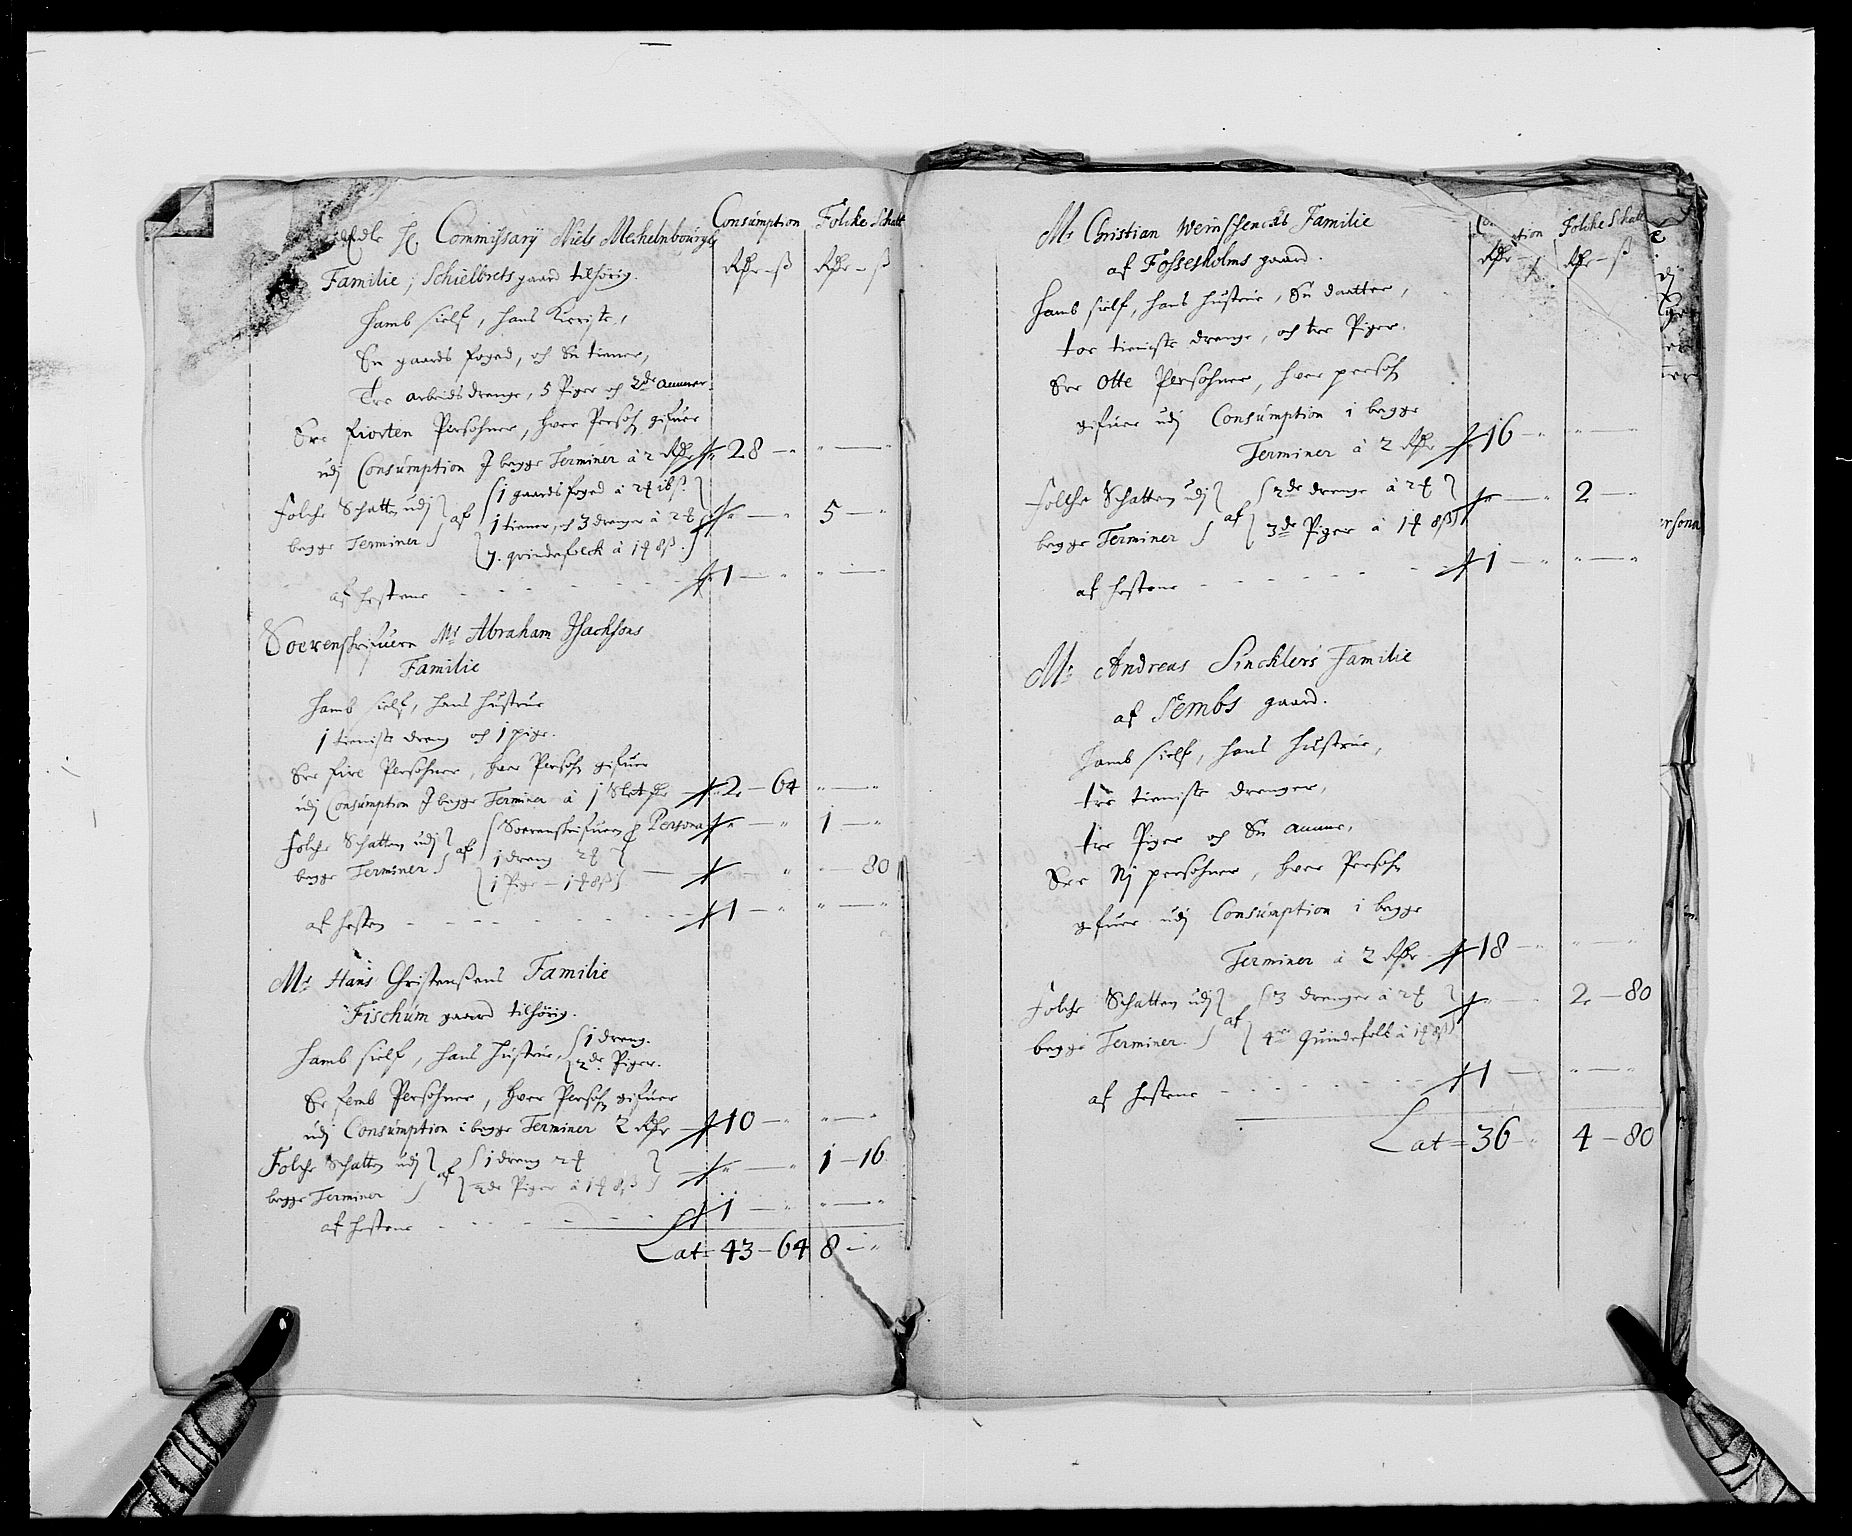 Consumption Folcke Schatt
Edle H. Commissary Niels Mechelnbourgs
Rdr – ß Rdr – ß
Familie, Schielbrets gaard tilhörig.
Hamb sielf, hans Kieriste,
En gaards foged, och En tienner,
Tre arbeids drenge, 5 Piger och 2de Ammer.
Ere fiorten Persohner, hver Persohn gifuer
udj Consumption J begge Terminer à 2 Rdr 28 – „ „ –
Folche Schatten udj begge Terminer af
1 gaards foged à 2 ibß.
1 tienner, och 3 drenge à 2 „ – „ 5 – „
7. qvindefolck à 1 8ß.
af hestene - - - - - 1 – „ „ – „
Sorenskrifueren Mr Abraham Jsachsons
Familie
Hamb sielf, hans hustrue
1 tieniste dreng och 1 pige.
Ere fire Persohner, hver Persohn gifuer
udj Consumption J begge Terminer à 1 Slet dr 2 – 64 „ – „
Folche Schatten udj begge Terminer af
Sorenskrifueren p Persona „ – „ 1 – „
1 dreng 2
1 Pige – 1 8ß – „ „ – 80
af hesten - - - - - 1 – „ „ – „
Mr Hans Christenßens Familie
Fischum gaard tilhörig.
Hamb sielf, hans hustrue, 1 dreng.
2de Piger.
Er femb Persohner, hver Persohn gifuer
udj Consumption i begge Terminer 2 Rdr 10 – „ „ – „
Folche Schatten udj begge Terminer af
1 dreng 2
2de Piger à 1 8ß „ – „ 1 – 16
af hestene - - - - - 1 – „ „ – „
Lat= 43 – 64 8 – „
Mr Christian Weinschencks Familie
Consumption Folcke Schatt
af Fossesholms gaard.
Rdr – ß Rdr – ß
Hamb sielf, hans hustrue, En daatter,
toe tieniste drenge, och tre Piger.
Ere Otte Persohner, hver persohn
gifuer udj Consumption i begge
Terminer à 2 Rdr 16 – „ „ – „
Folche Schatten udj begge Terminer af
2de drenge à 2 „ – „ 2 – „
3de Piger à 1 8ß
af hestene - - - - - 1 – „ „ – „
Mr Andreas Sincklers Familie
af Sembs gaard.
Hamb sielf, hans hustrue,
tre tieniste drenger,
tre Piger och En Amme,
Ere Nj persohner, hver Persohn
gifuer udj Consumption i begge
Terminer à 2 Rdr 18 – „ „ – „
Folche Schatten udj begge Terminer af
3 drenger à 2 „ – „ 2 – 80
4re Quindefolk à 1 8ß
af hestene - - - - - 1 – „ „ – „
Lat= 36 – „ 4 – 80